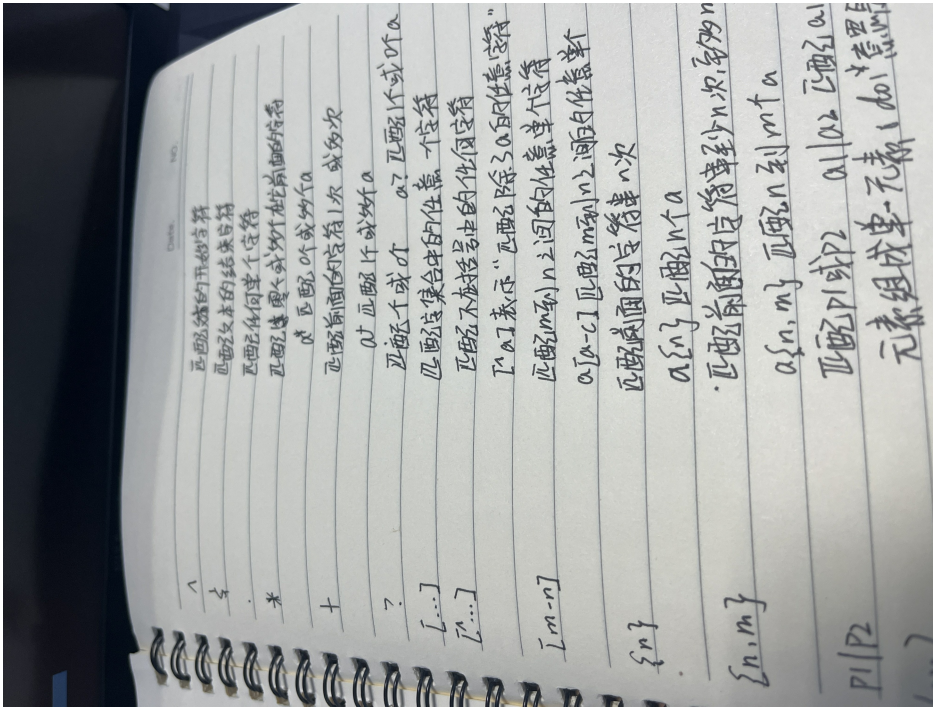 Date. NO.
^ 匹配文本的开始字符
$ 匹配文本的结束字符
. 匹配任何单个字符
* 匹配零个或多个在前面的字符
a* 匹配0个或多个a
+ 匹配前面的字符1次或多次
a+ 匹配1个或多个a
? 匹配个或0个 a? 匹配1个或0个a
[...] 匹配字集合中的任意一个字符
[^...] 匹配不在括号中的任何字符
[^a]表示“匹配除了a的任意字符”
[m-n] 匹配m到n之间的任意单个字符
a[a-c]匹配m到n之间的任意单个
{n} 匹配前面的字符串n次
a{n} 匹配n个a
{n,m} 匹配前面的字符串至少n次,至多m
a{n,m} 匹配n到m个a
P1|P2 匹配P1或P2 a1|a2 匹配a1
元素组成单一元素,